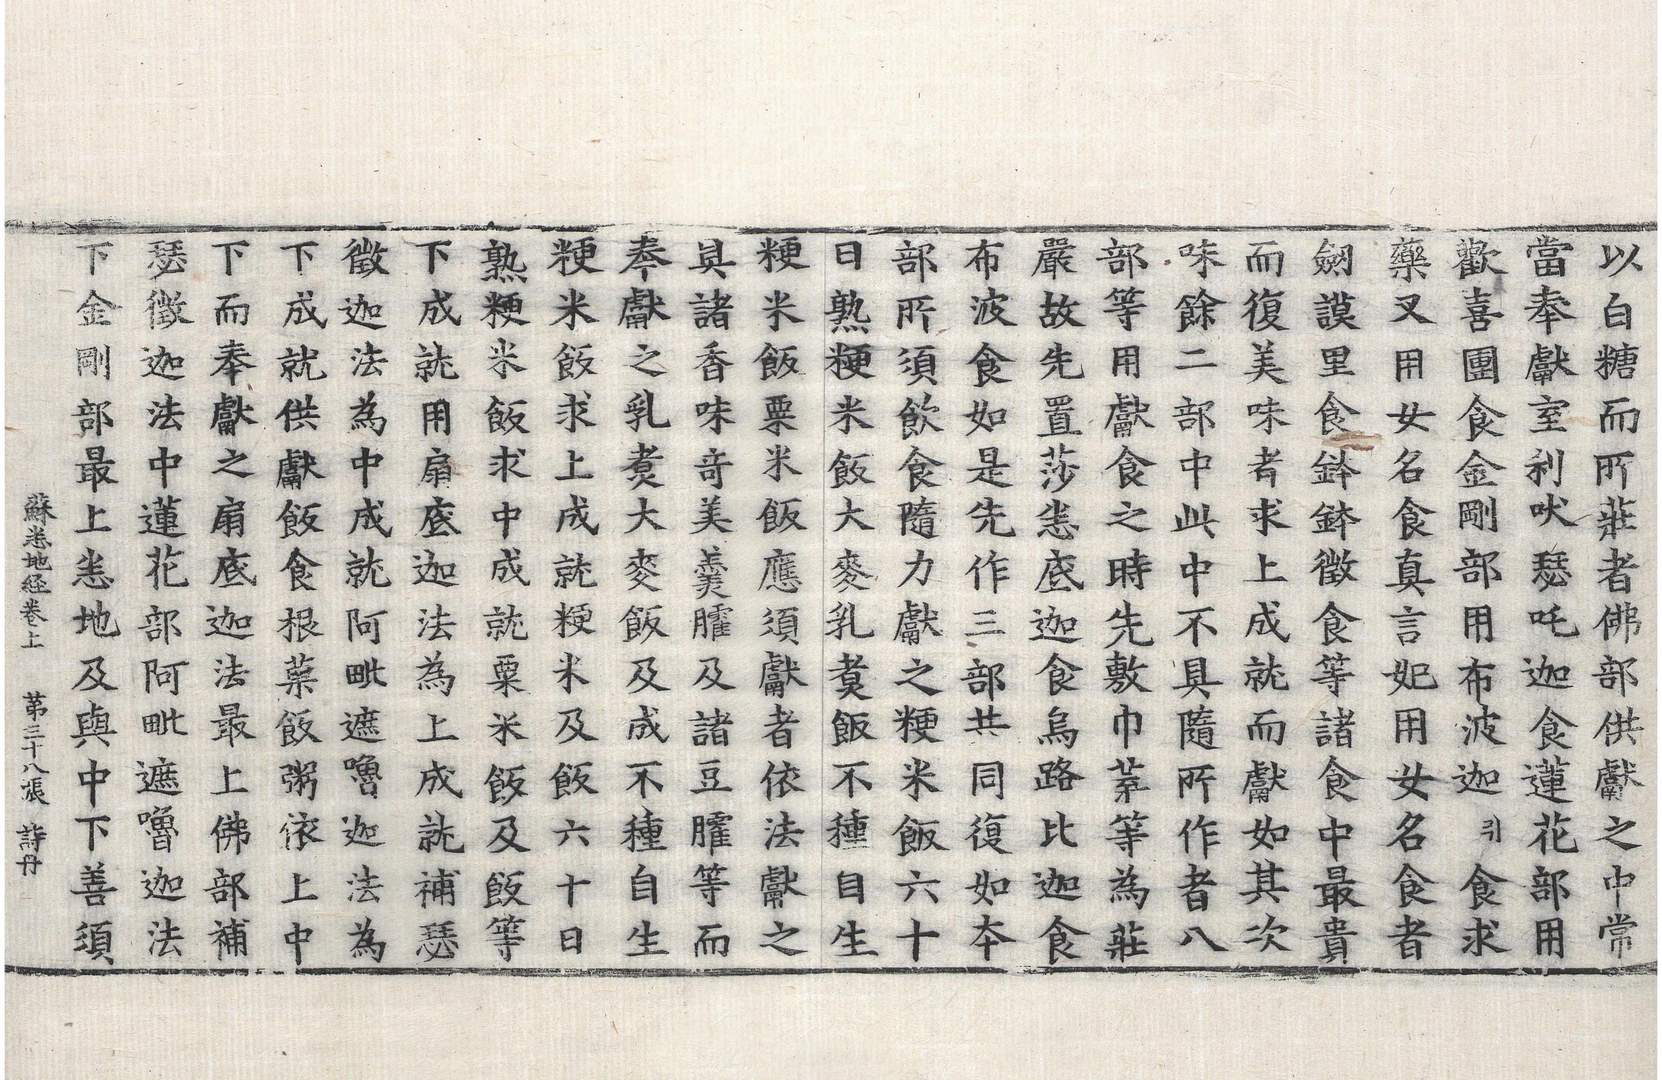 以白糖而所莊者佛部供獻之中常
當奉獻室利吠瑟吒迦食蓮花部用
歡喜團食金剛部用布波迦引食求
藥叉用女名食真言妃用女名食者
劒謨里食鉡鉢徵食等諸食中最貴
而復美味者求上成就而獻如其次
味餘二部中此中不具隨所作者八
部等用獻食之時先敷巾荼等為莊
嚴故先置莎悉底迦食烏路比迦食
布波食如是先作三部共同復如夲
部所須飲食隨力獻之粳米飯六十
日熟粳米飯大麥乳煑飯不種自生
粳米飯粟米飯應須獻者依法獻之
具諸香味竒美羹臛及諸豆臛等而
奉獻之乳煑大麥飯及成不種自生
粳米飯求上成就粳米及飯六十日
熟粳米飯求中成就粟米飯及飯等
下成就用扇底迦法為上成就補瑟
徵迦法為中成就阿毗遮嚕迦法為
下成就供獻飯食根葉飯粥依上中
下而奉獻之扇底迦法最上佛部補
瑟徵迦法中蓮花部阿毗遮嚕迦法
下金剛部最上悉地及與中下善須
蘇悉地経卷上 苐三十八張 詩丹